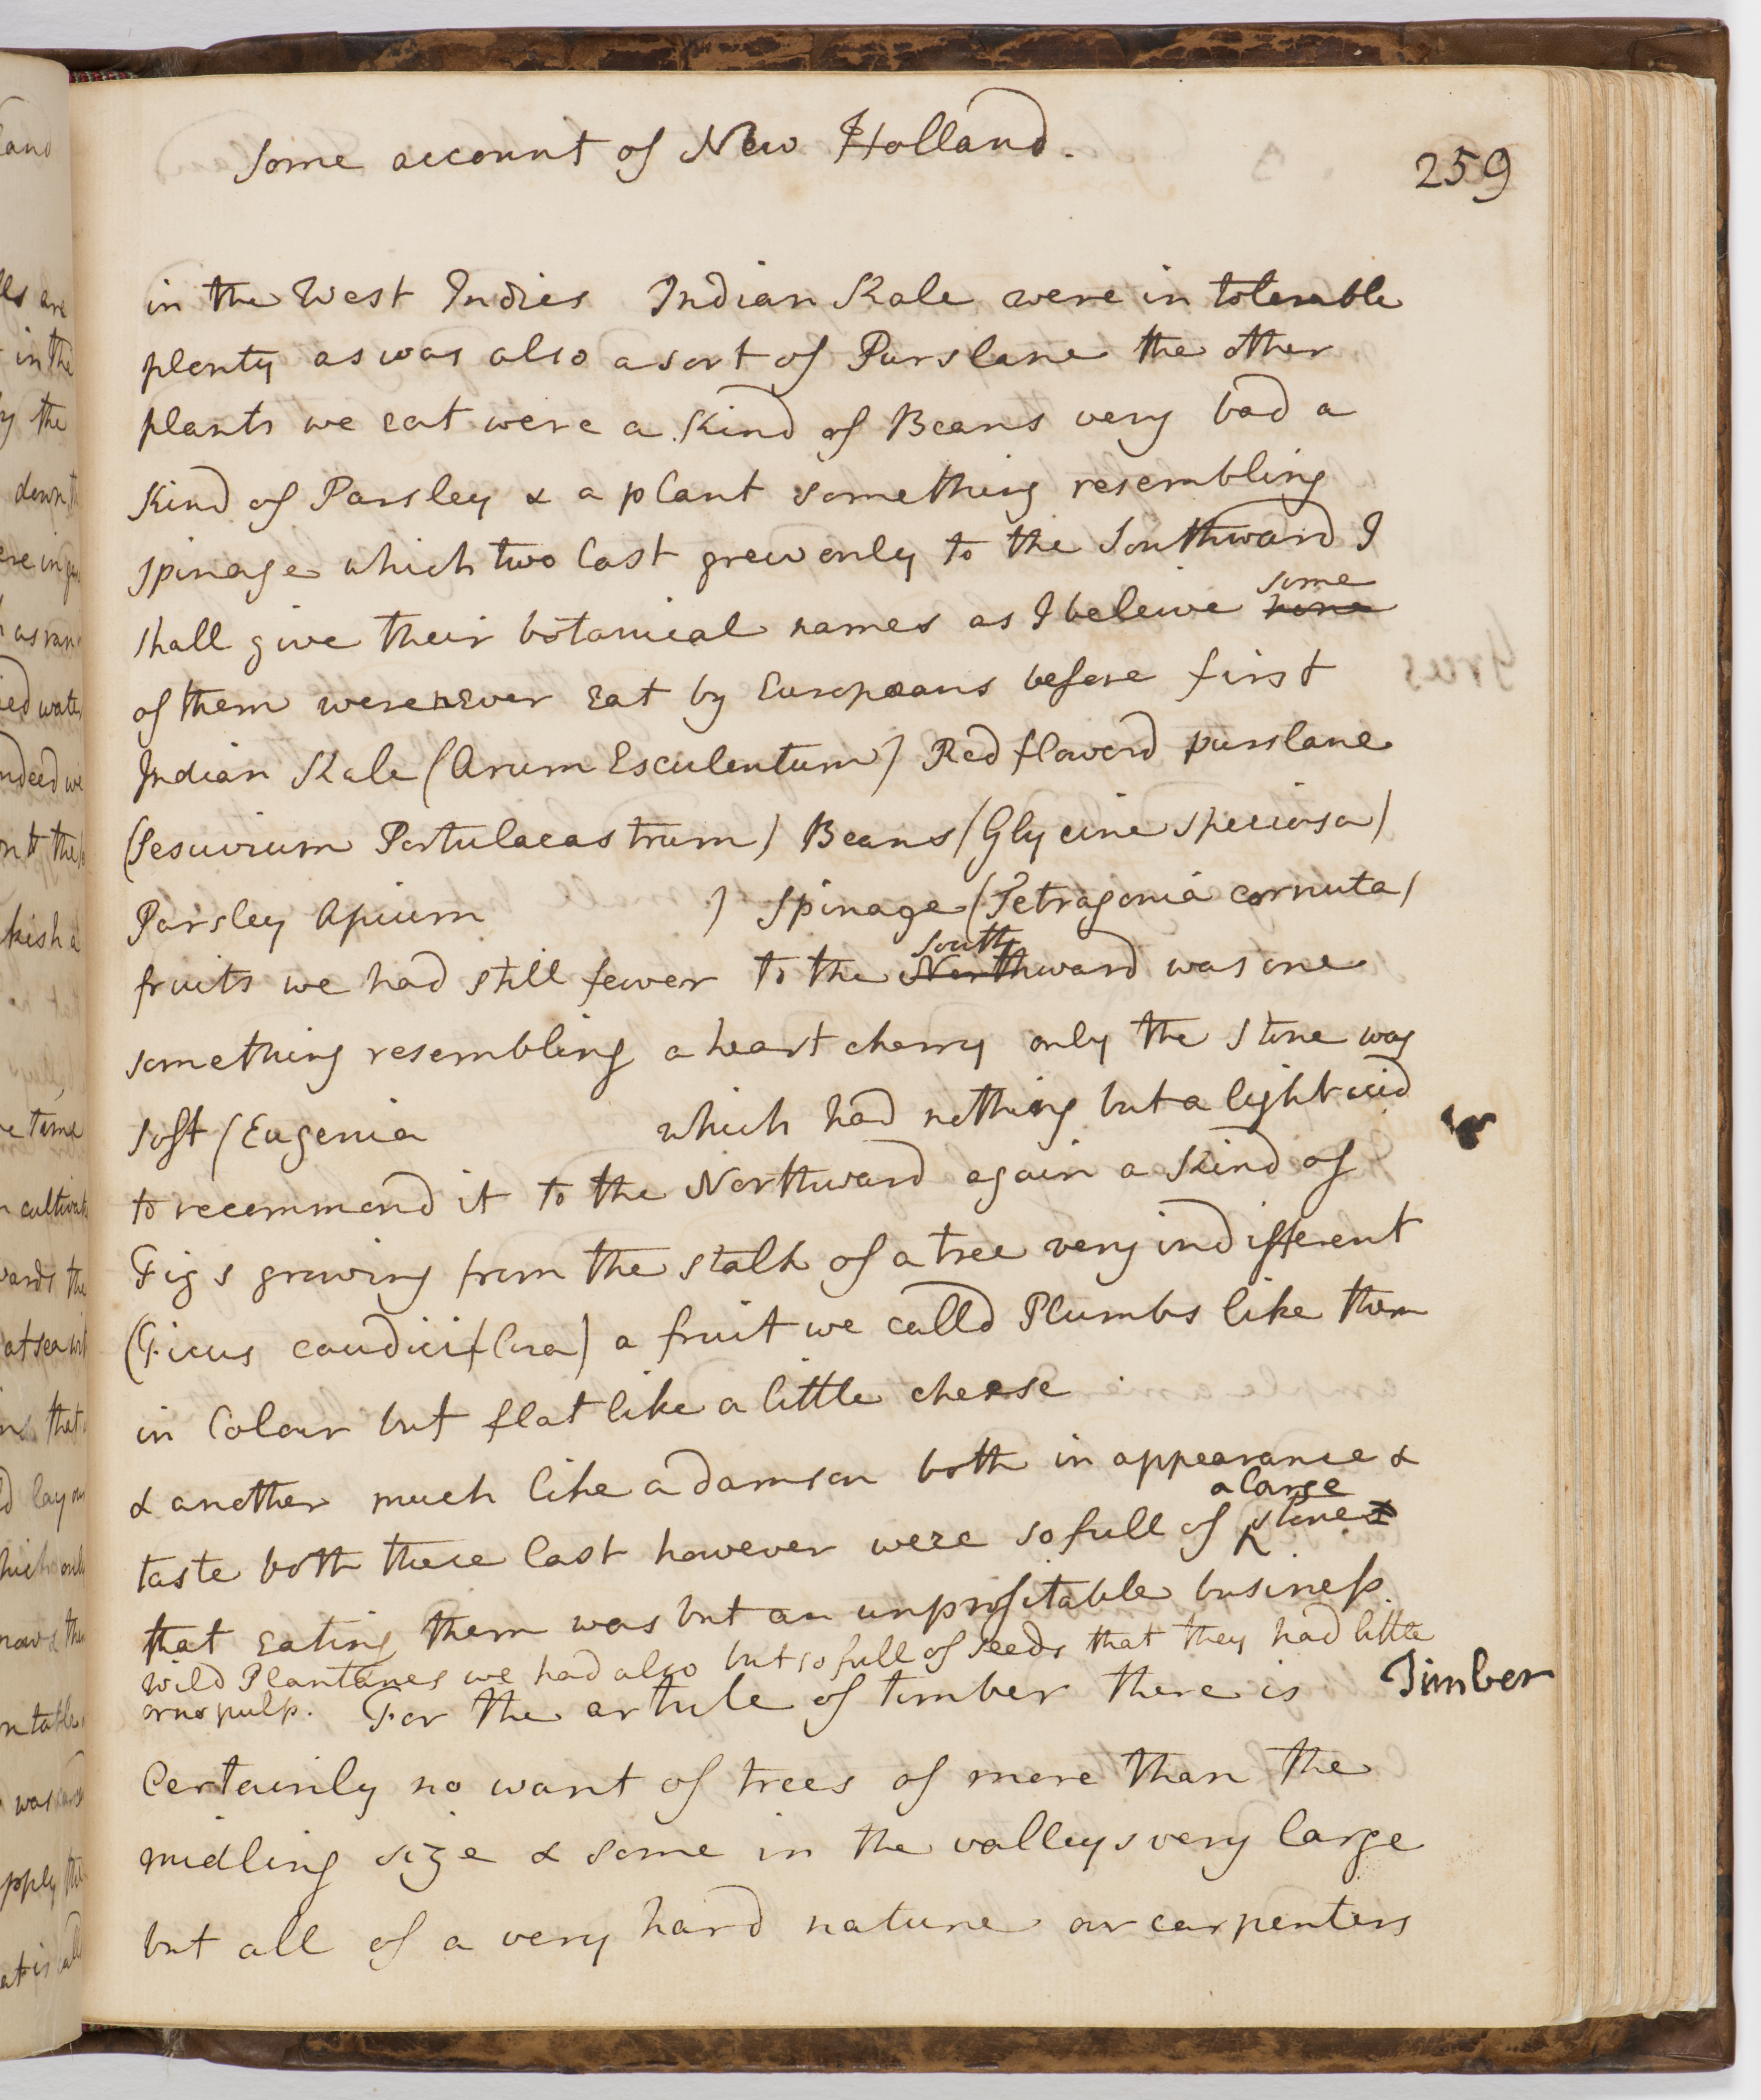 Some account of New Holland.
259
in the West Indies Indian Kale were in tolerable
plenty as was also a sort of Purslane the other
plants we eat were a kind of Beans very bad a
Kind of Parsley & a plant something resembling
spinage which two last grew only to the Southward I
shall give their botanical names as I beleive none
some
of them were never eat by Europæans before first
Indian Kale (Arum Esculentum) Red flowerd purslane
(Sesuvium Portulacastrum) Beans (Glycine speciosa)
Parsley Apium ) Spinage (Tetragonia cornuta)
fruits we had still fewer to the Northward was one
South
something resembling a heart cherry only the stone was
soft (Eugenia which had nothing but a light acid
to recommend it to the Northward again a kind of
Figs growing from the stalk of a tree very indifferent
(Ficus caudiciflora) a fruit we calld Plumbs like them
in Colour but flat like a little cheese
& another much like a damson both in appearance &
taste both these last however were so full of stones
a large
that eating them was but an unprofitable business
wild Plantanes we had also but so full of seeds that they had little
or no pulp. For the article of timber there is
Timber
Certainly no want of trees of more than the
midling size & some in the valleys very large
but all of a very hard nature our carpenters